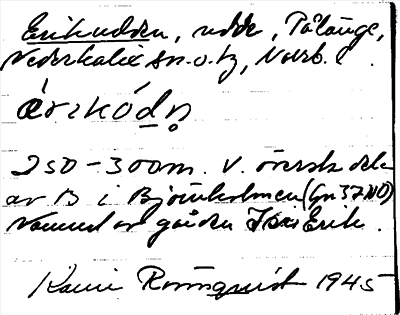 Erikudden, udde, Pålänge,
Nederkalix sn. o. tg, Norrb.
250-300 m. V. översk del
av B i Björnholmen (Gn 37 NO)
Namnet av gården Erik.
Karin Rönnquist 1945